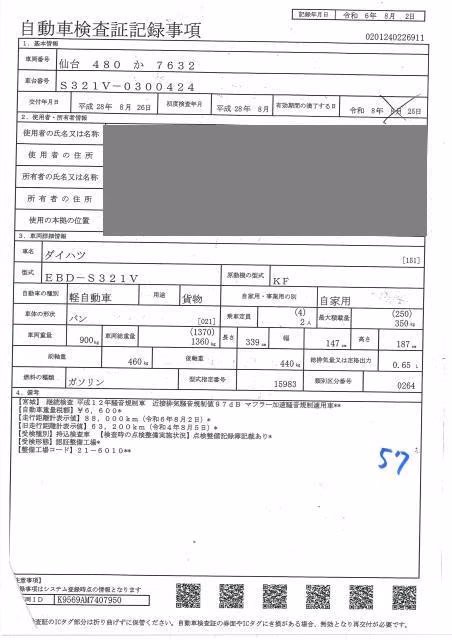 記録年月日 令和 6年 8月 2日
自動車検査証記録事項
0201240226911
1. 基本情報
車両番号 仙台 480 か 7632
車台番号 S321V-0300424
交付年月日 平成 28年 8月 26日 初度検査年月 平成 28年 8月 有効期間の満了する日 令和 8年 8月 25日
2. 使用者・所有者情報
使用者の氏名又は名称
使用者の住所
所有者の氏名又は名称
所有者の住所
使用の本拠の位置
3. 車両詳細情報
車名 ダイハツ [151]
型式 EBD-S321V 原動機の型式 KF
自動車の種別 軽自動車 用途 貨物 自家用・事業用の別 自家用
車体の形状 バン [021] 乗車定員 (4) 2人 最大積載量 (250) 350kg
車両重量 900kg 車両総重量 (1370) 1360kg 長さ 339cm 幅 147cm 高さ 187cm
前軸重 460kg 後軸重 440kg 総排気量又は定格出力 0.65L
燃料の種類 ガソリン 型式指定番号 15983 類別区分番号 0264
4. 備考
【宮城】 継続検査 平成12年騒音規制車 近接排気騒音規制値97dB マフラー加速騒音規制適用車**
【自動車重量税額】¥6,600*
【走行距離計表示値】88,000km(令和6年8月2日)*
【旧走行距離計表示値】63,200km(令和4年8月5日)*
【受検種別】持込検査車 【検査時の点検整備実施状況】点検整備記録簿記載あり*
【受検形態】認証整備工場*
【整備工場コード】21-6010**
57
注意事項】
録事項はシステム登録時点の情報となります
両ID K9569AM7407950
査証のICタグ部分は折り曲げずに保管ください。自動車検査証の券面やICタグにき損がある場合、無効となり再交付が必要です。